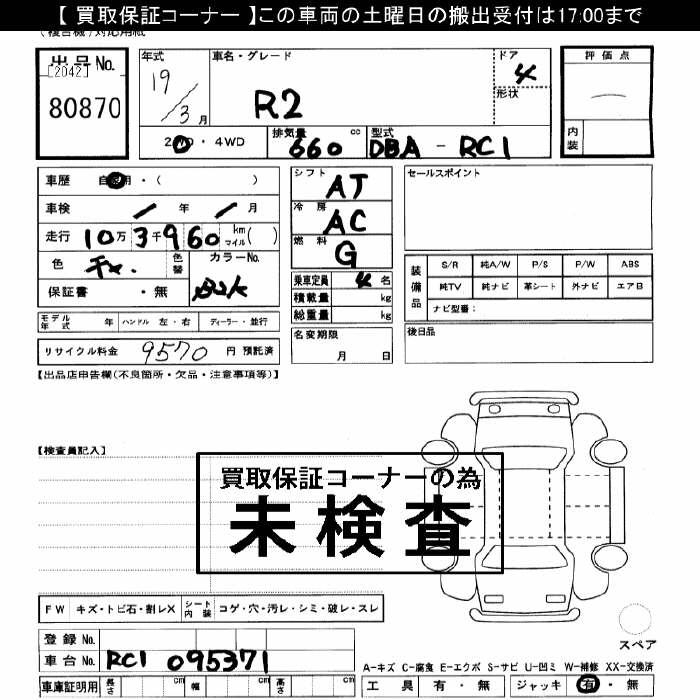 【 買取保証コーナー 】この車両の土曜日の搬出受付は17:00まで
出品No.
[2042]
80870
年式
19/3月
車名・グレード
R2
ドア
4
形状
評価点
内装
2WD・4WD
排気量 cc
660
型式
DBA - RC1
車歴 自家用・( )
車検 / 年 / 月
走行 10万3千960 km マイル( )
色
色替
カラーNo.
保証書 ・無
シフト
AT
冷房
AC
燃料
G
乗車定員 4名
積載量 kg
総重量 kg
名変期限
月 日
セールスポイント
装備品
S/R 純A/W P/S P/W ABS
純TV 純ナビ 革シート 外ナビ エアB
ナビ型番:
後日品
モデル年式 年 ハンドル 左・右 ディーラー・並行
リサイクル料金 9570 円 預託済
【出品店申告欄(不良箇所・欠品・注意事項等)】
【検査員記入】
買取保証コーナーの為
未検査
FW キズ・トビ石・割レX シート内装 コゲ・穴・汚レ・シミ・破レ・スレ
登録No.
車台No. RC1 095371
車庫証明用 長さ cm 幅 cm 高さ cm
スペア
A-キズ C-腐食 E-エクボ S-サビ U-凹ミ W-補修 XX-交換済
工具 有・無 ジャッキ 有・無